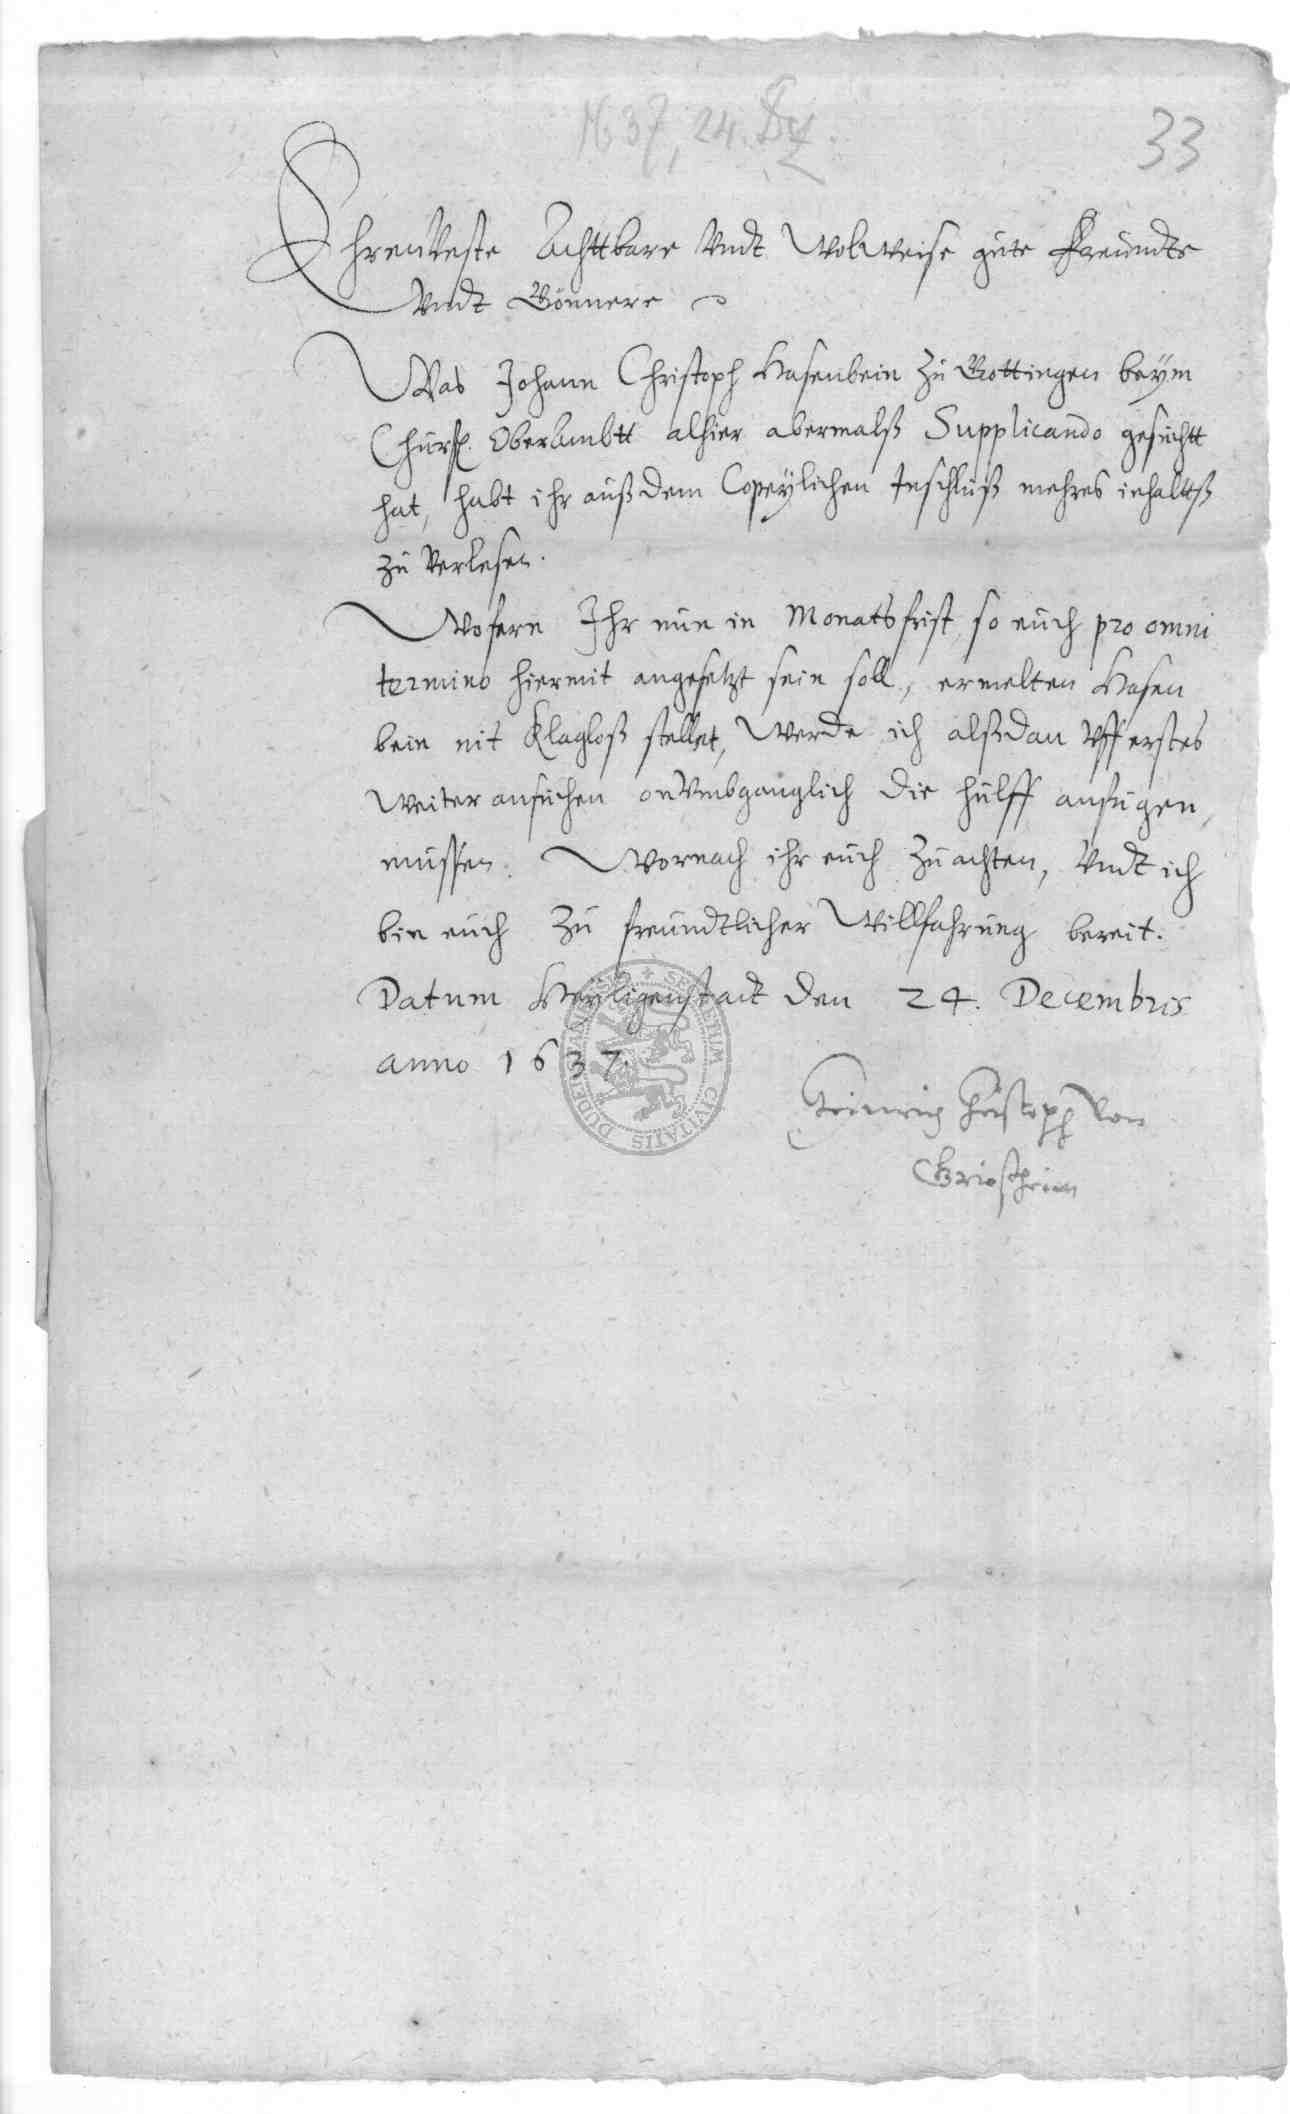 1637, 24. Dez.
33
EhrenVeste Achttbare Vndt WolWeise gute Freundte
Vndt Gönnere
Was Johann Christoph Hasenbein zu Gottingen beÿm
Churfl. OberAmbtt alhier abermalß Supplicando gesuchtt
hat, habt ihr auß dem Copeÿlichen Inschluß mehres inhalttß
zu Verlesen.
Wofern Ihr nun in Monatsfrist, so euch pro omni
termino hiermit angesetzt sein soll, ermelten Hasen
bein nit Klagloß stellet, Werde ich alßdan Vff erstes
Weiter ansuchen onVmbganglich die hulff anfugen,
mussen. Wornach ihr euch zu achten, Vndt ich
bin euch zu freundtlicher Willfahrung bereit.
Datum Heÿligenstadt den 24. Decembris
anno 1637.
Heinrich Christoph von
Griesheim
CIVITATIS DUDERSTADIENSIS